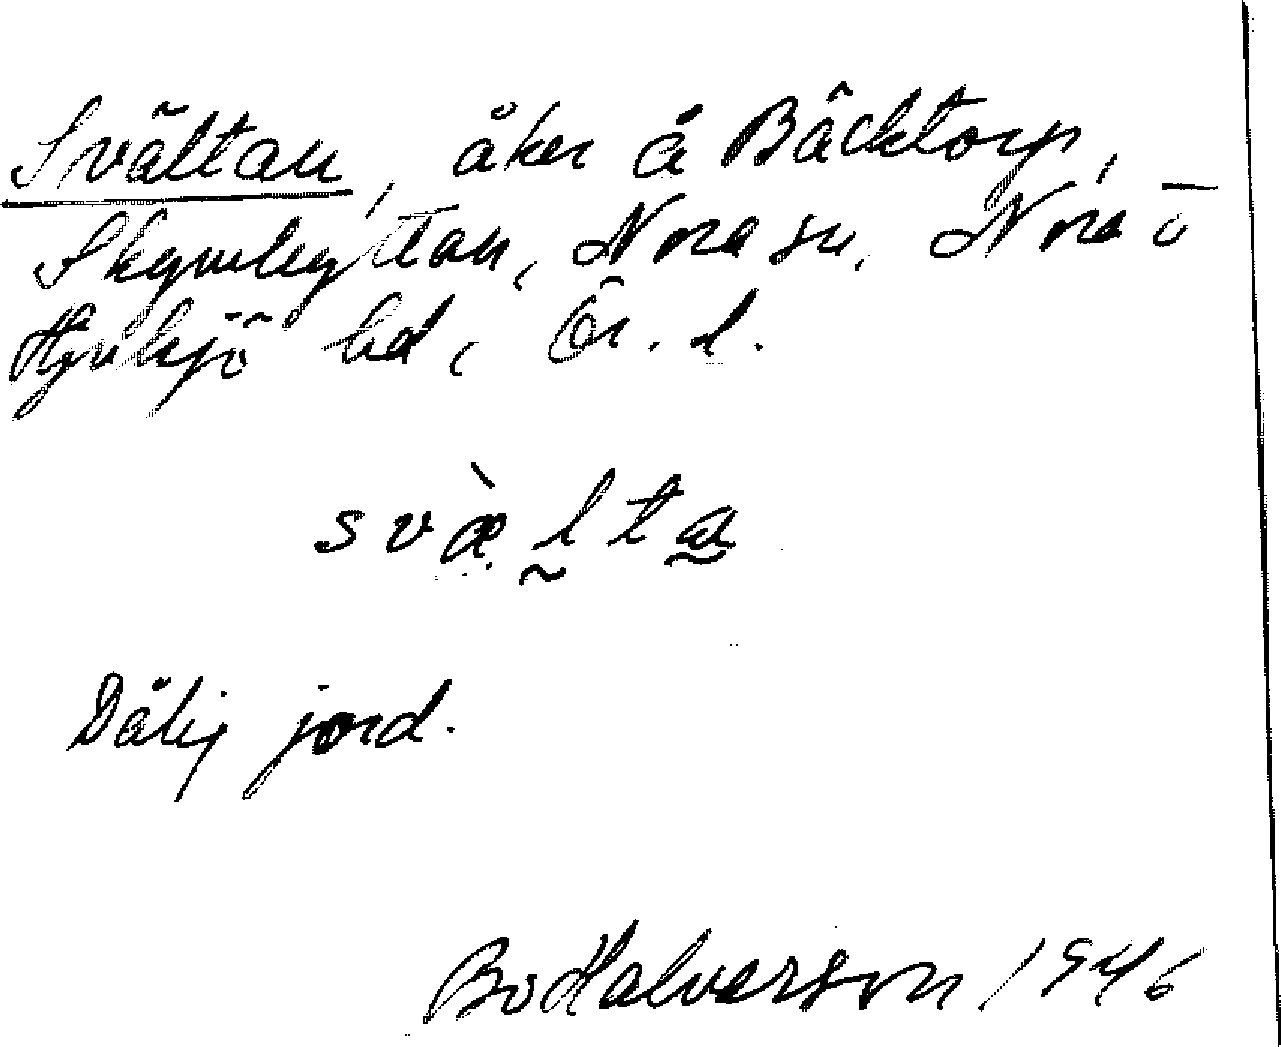 Svältan, åker å Bäcktorp,
Skymhyttan, Nora sn, Nora o
Hjulsjö hd, Ör. l.
svæ̀lta
Dålig jord.
Bo Halverson 1946